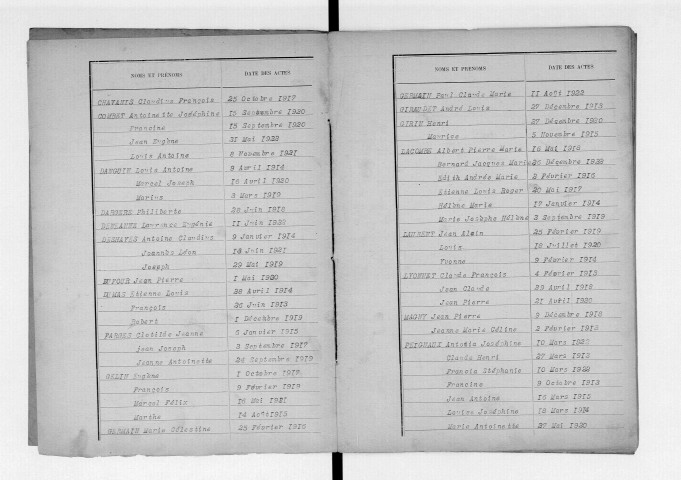 NOMS ET PRENOMS DATE DES ACTES
Claudius François 25 Octobre 1917
COMBET Antoinette Joséphine 15 Septembre 1920
Francine 15 Septembre 1920
Jean Eugène 31 Mai 1922
Louis Antoine 8 Novembre 1921
Louis Antoine 9 Avril 1914
Marcel Joseph 16 Avril 1920
Marius 3 Mars 1912
Philiberte 22 Juin 1912
Laurence Eugénie 11 Juin 1922
DESHAYES Antoine Claudius 9 Janvier 1914
Joannès Léon 18 Juin 1921
Joseph 29 Mai 1919
DUFOUR Jean Pierre 1 Mai 1920
DUMAS Etienne Louis 28 Avril 1914
François 26 Juin 1913
Robert 1 Décembre 1919
FARGES Clotilde Jeanne 5 Janvier 1915
Jean Joseph 3 Septembre 1917
Jeanne Antoinette 26 Septembre 1919
GELIN Eugène 1 Octobre
François 9 Février 1919
Marcel Félix 16 Mai 1921
Marthe 14 Août 1915
GERMAIN Marie Célestine 25 Février 1916
NOMS ET PRENOMS DATE DES ACTES
GERMAIN Paul Claude Marie 11 Août 1922
GIRAUDET André Louis 27 Décembre 1913
GIRIN Henri 27 Décembre 1920
Maurice 5 Novembre 1915
LACOMBE Albert Pierre Marie 16 Mai 1918
Bernard Jacques Marie 26 Décembre 1922
Edith Andrée Marie 2 Février 1916
Etienne Louis Roger 20 Mai 1917
Hélène Marie 17 Janvier 1914
Marie Josèphe Hélène 2 Septembre 1919
LAURENT Jean Alain 25 Février 1919
Louis 12 Juillet 1920
Yvonne 9 Février 1914
Claude François 4 Février 1913
Jean Claude 29 Avril 1919
Jean Pierre 21 Avril 1920
MAGNY Jean Pierre 9 Décembre 1918
Jeanne Marie Céline 2 Février 1912
Antonia Joséphine 10 Mars 1922
Claude Henri 27 Mars 1912
Francis Stéphanie 10 Mars 1922
Francine 9 Octobre 1913
Jean Antoine 15 Mars 1915
Louise Joséphine 18 Mars 1914
Marie Antoinette 27 Mai 1920